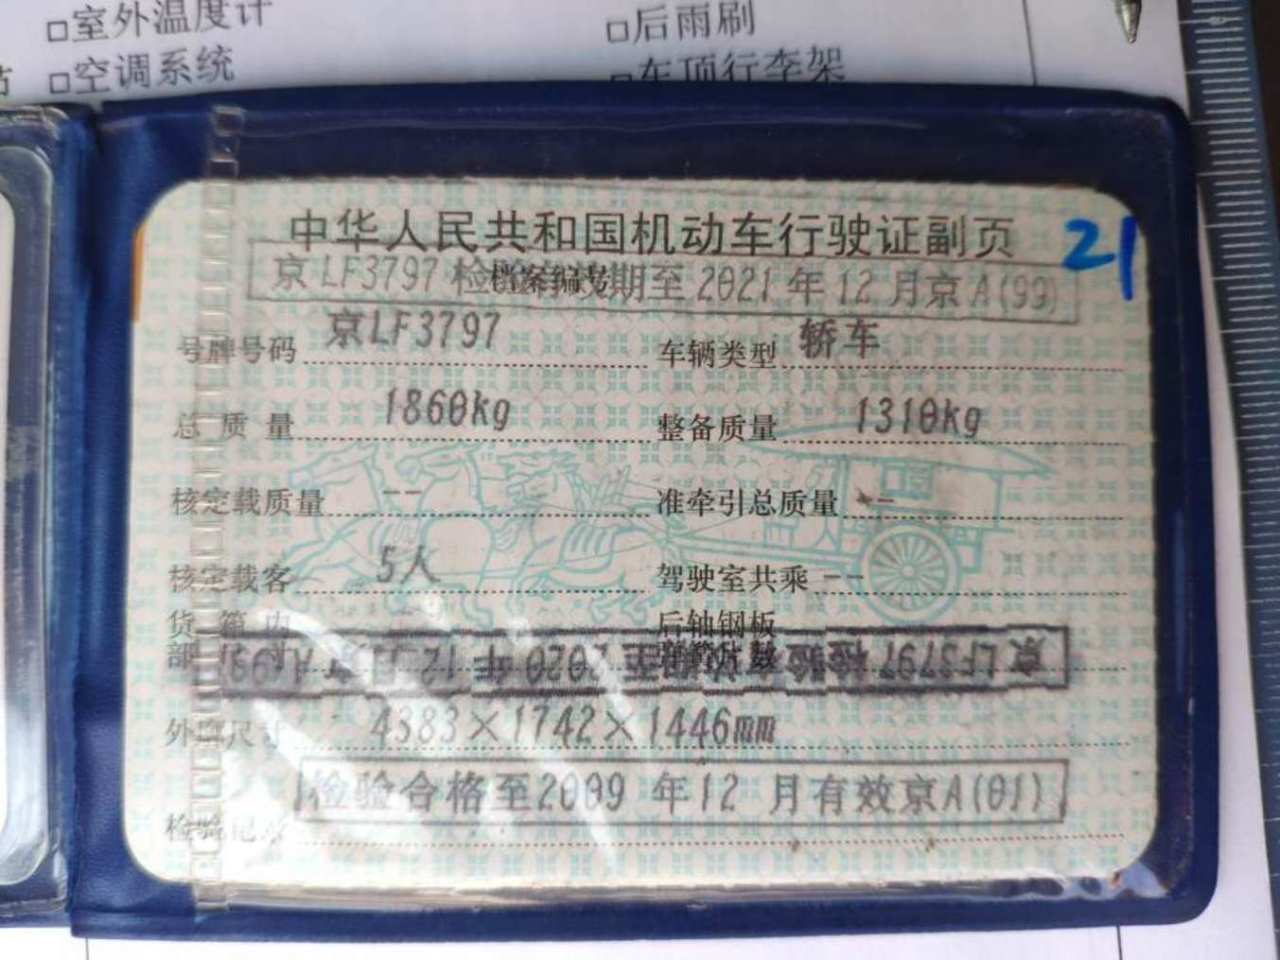 □室外温度计 □后雨刷
□空调系统 □车顶行李架
中华人民共和国机动车行驶证副页
21
京LF3797 检验有效期至 2021 年 12 月京A(99)
档案编号
号牌号码 京LF3797 车辆类型 轿车
总 质 量 1860kg 整备质量 1310kg
核定载质量 -- 准牵引总质量 --
核定载客 5人 驾驶室共乘 --
货 箱 内 后轴钢板
京LF3797 检验有效期至 2020 年 12 月京A(99)
外廓尺寸 4383×1742×1446mm
检验合格至2009 年12 月有效京A(01)
检验记录